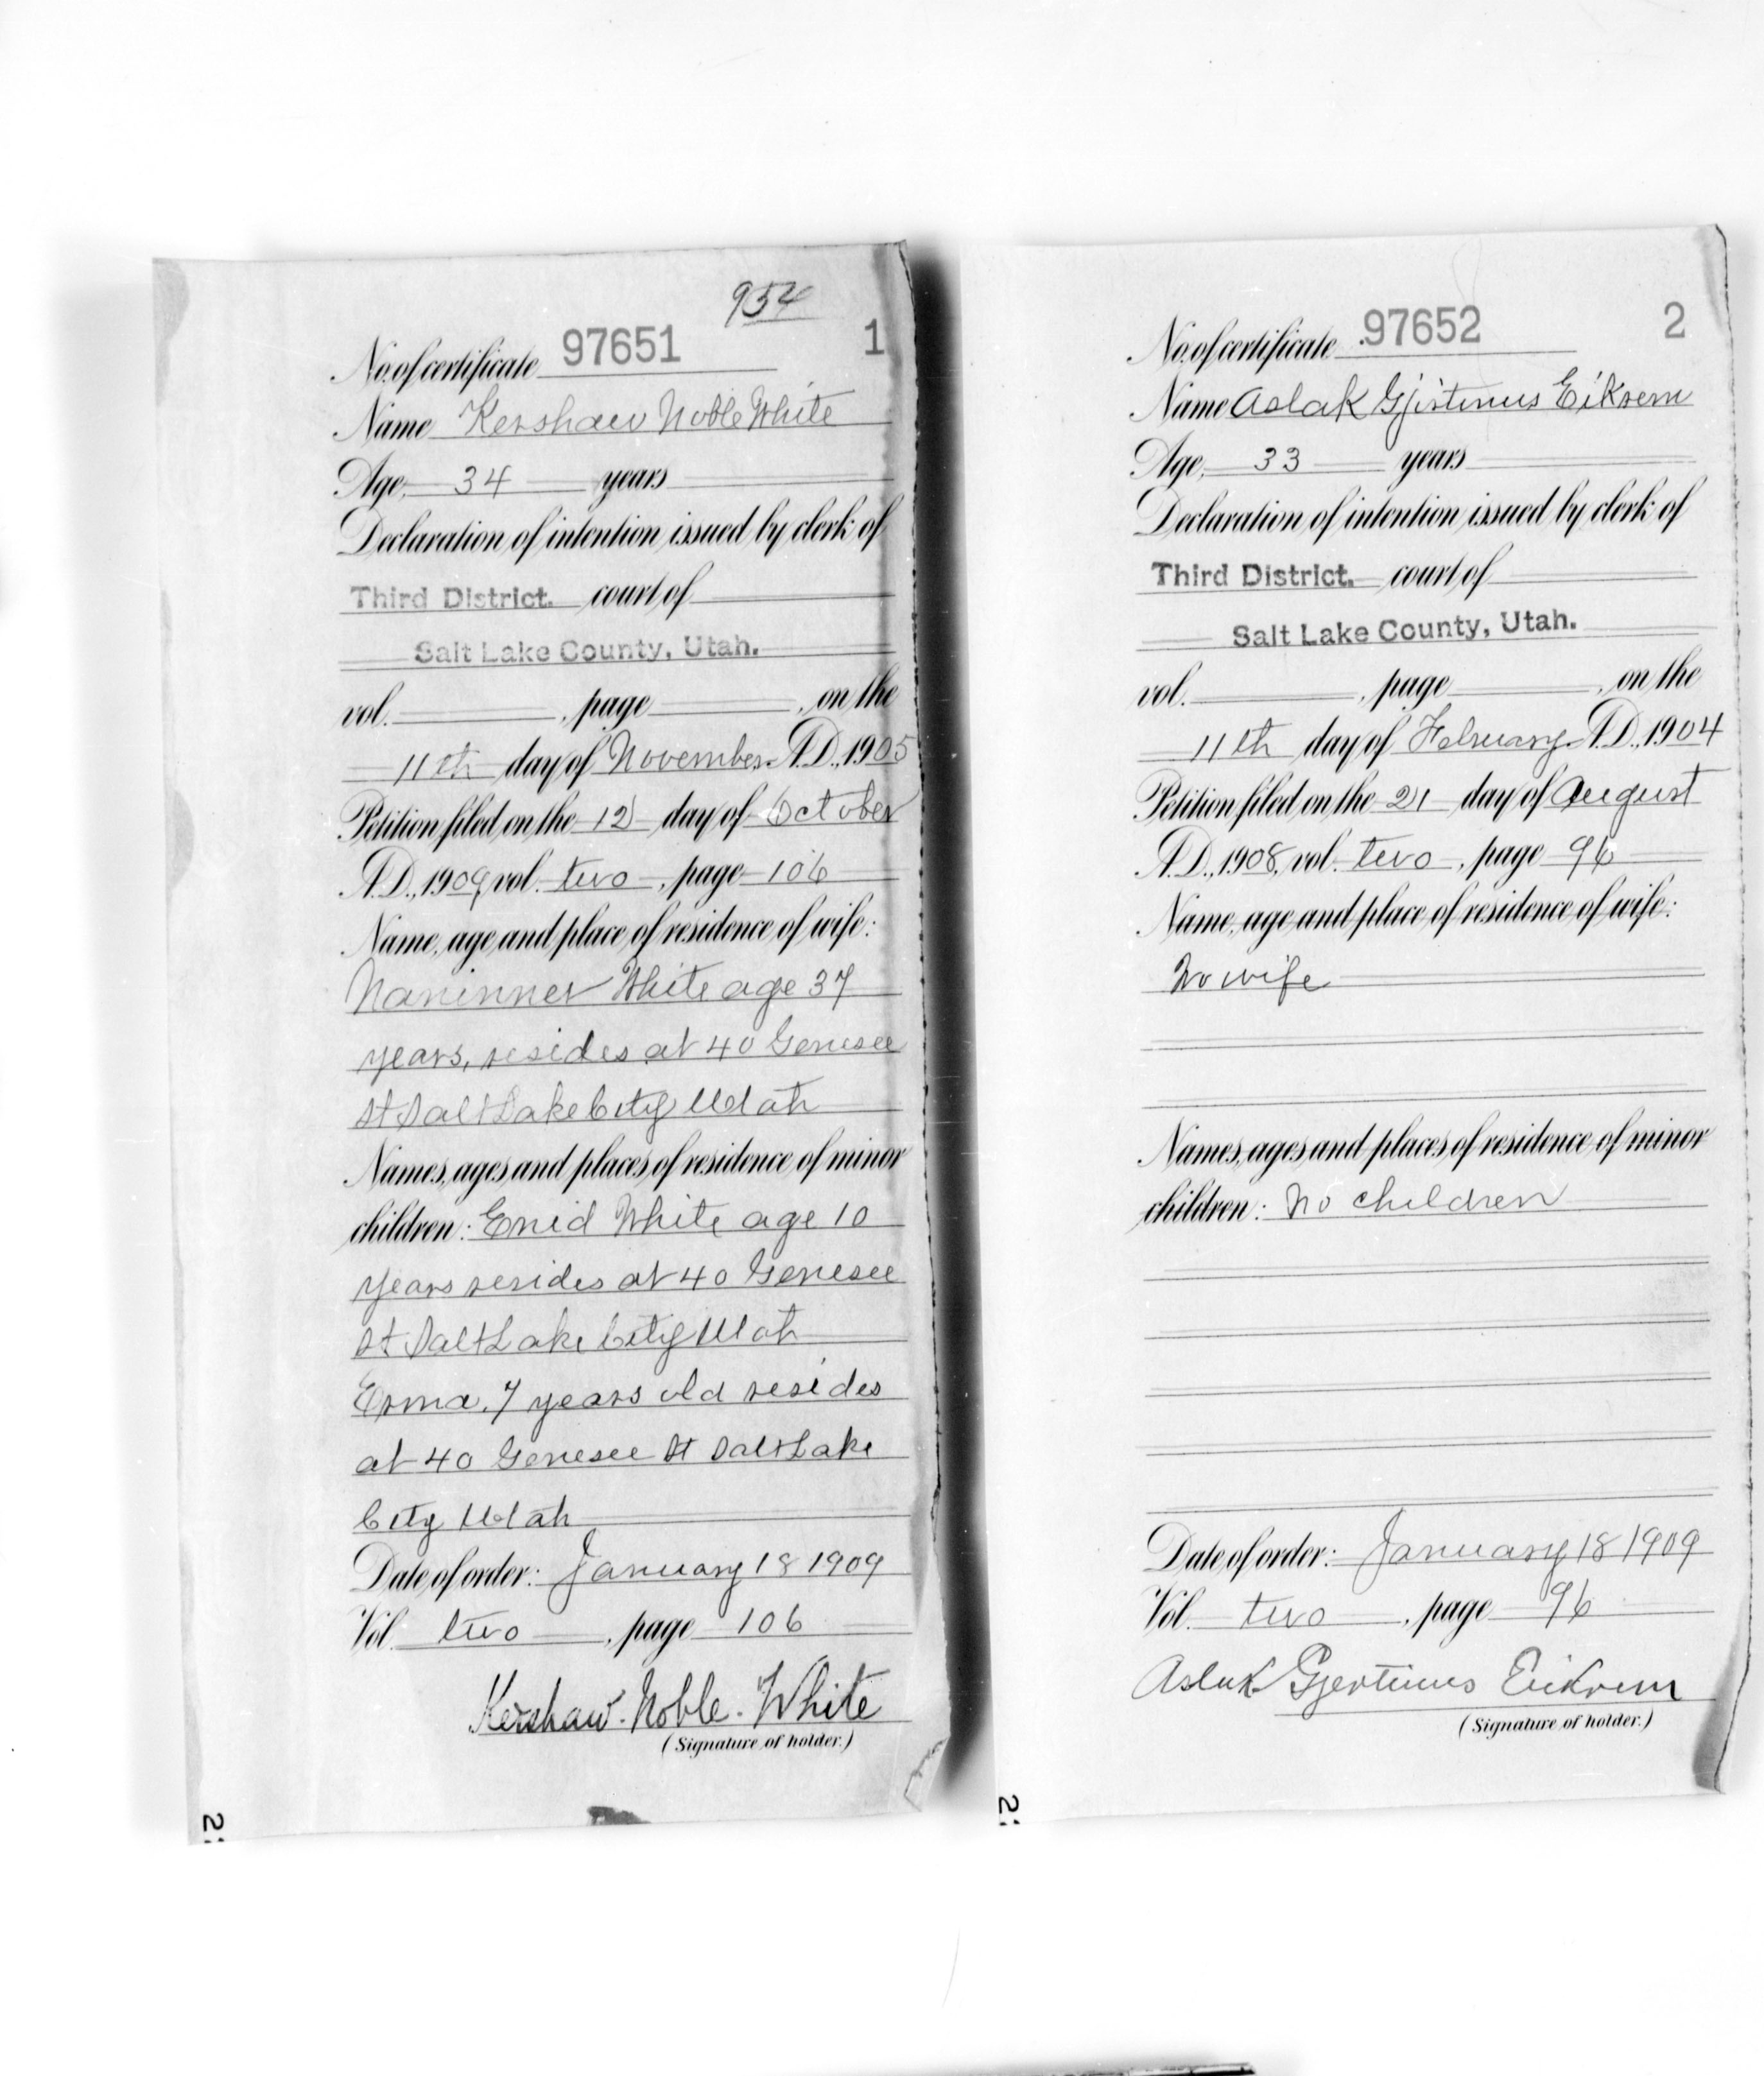 954
No. of certificate 97651 1
Name Kershaw Noble White
Age, 34 years
Declaration of intention issued by clerk of
Third District. court of
Salt Lake County, Utah.
vol. , page , on the
11th day of November A.D., 1905
Petition filed on the 12 day of October
A.D., 1909, vol. two, page 106
Name, age and place of residence of wife:
White age 37
years, resides at 40 Genesee
St Salt Lake City Utah
Names, ages and places of residence of minor
children: Enid White age 10
years resides at 40 Genesee
St Salt Lake City Utah
Erma, 7 years old resides
at 40 Genesee St Salt Lake
City Utah
Date of order: January 18 1909
Vol. two, page 106
Kershaw. Noble. White
(Signature of holder.)
No. of certificate 97652 2
Name Aslak Gjirtinus Eikrem
Age, 33 years
Declaration of intention issued by clerk of
Third District. court of
Salt Lake County, Utah.
vol. , page , on the
11th day of February A.D., 1904
Petition filed on the 21 day of August
A.D., 1908, vol. two, page 96
Name, age and place of residence of wife:
No wife
Names, ages and places of residence of minor
children: No children
Date of order: January 18 1909
Vol. two, page 96
Aslak Gjertinus Eikrem
(Signature of holder.)